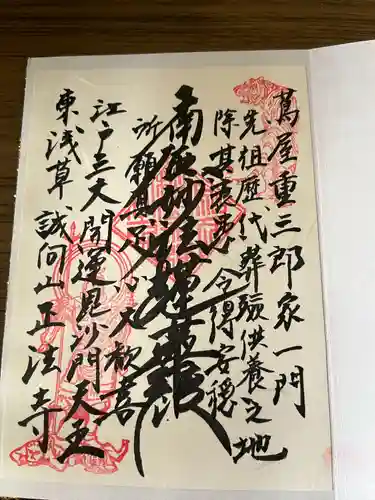 蔦屋重三郎家一門
先祖歴代葬殯供養之地
除其衰患 令得安穏
南無妙法蓮華経
所願具足 心大歓喜
江戸三大開運毘沙門天王
東浅草 誠向山正法寺